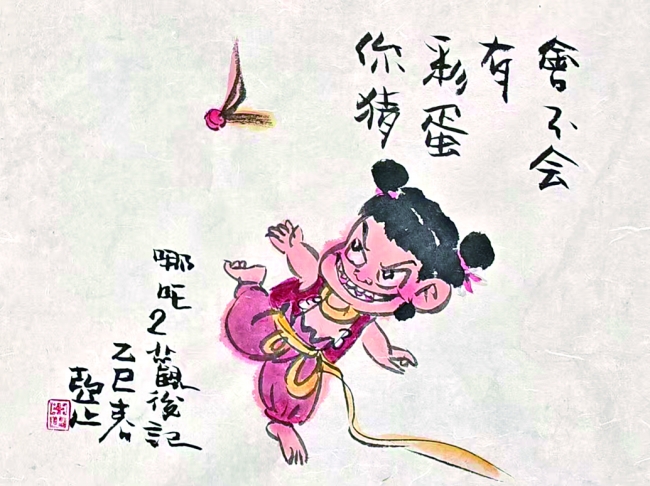 會不会
有
彩蛋
你猜
哪吒2觀後記
乙巳春